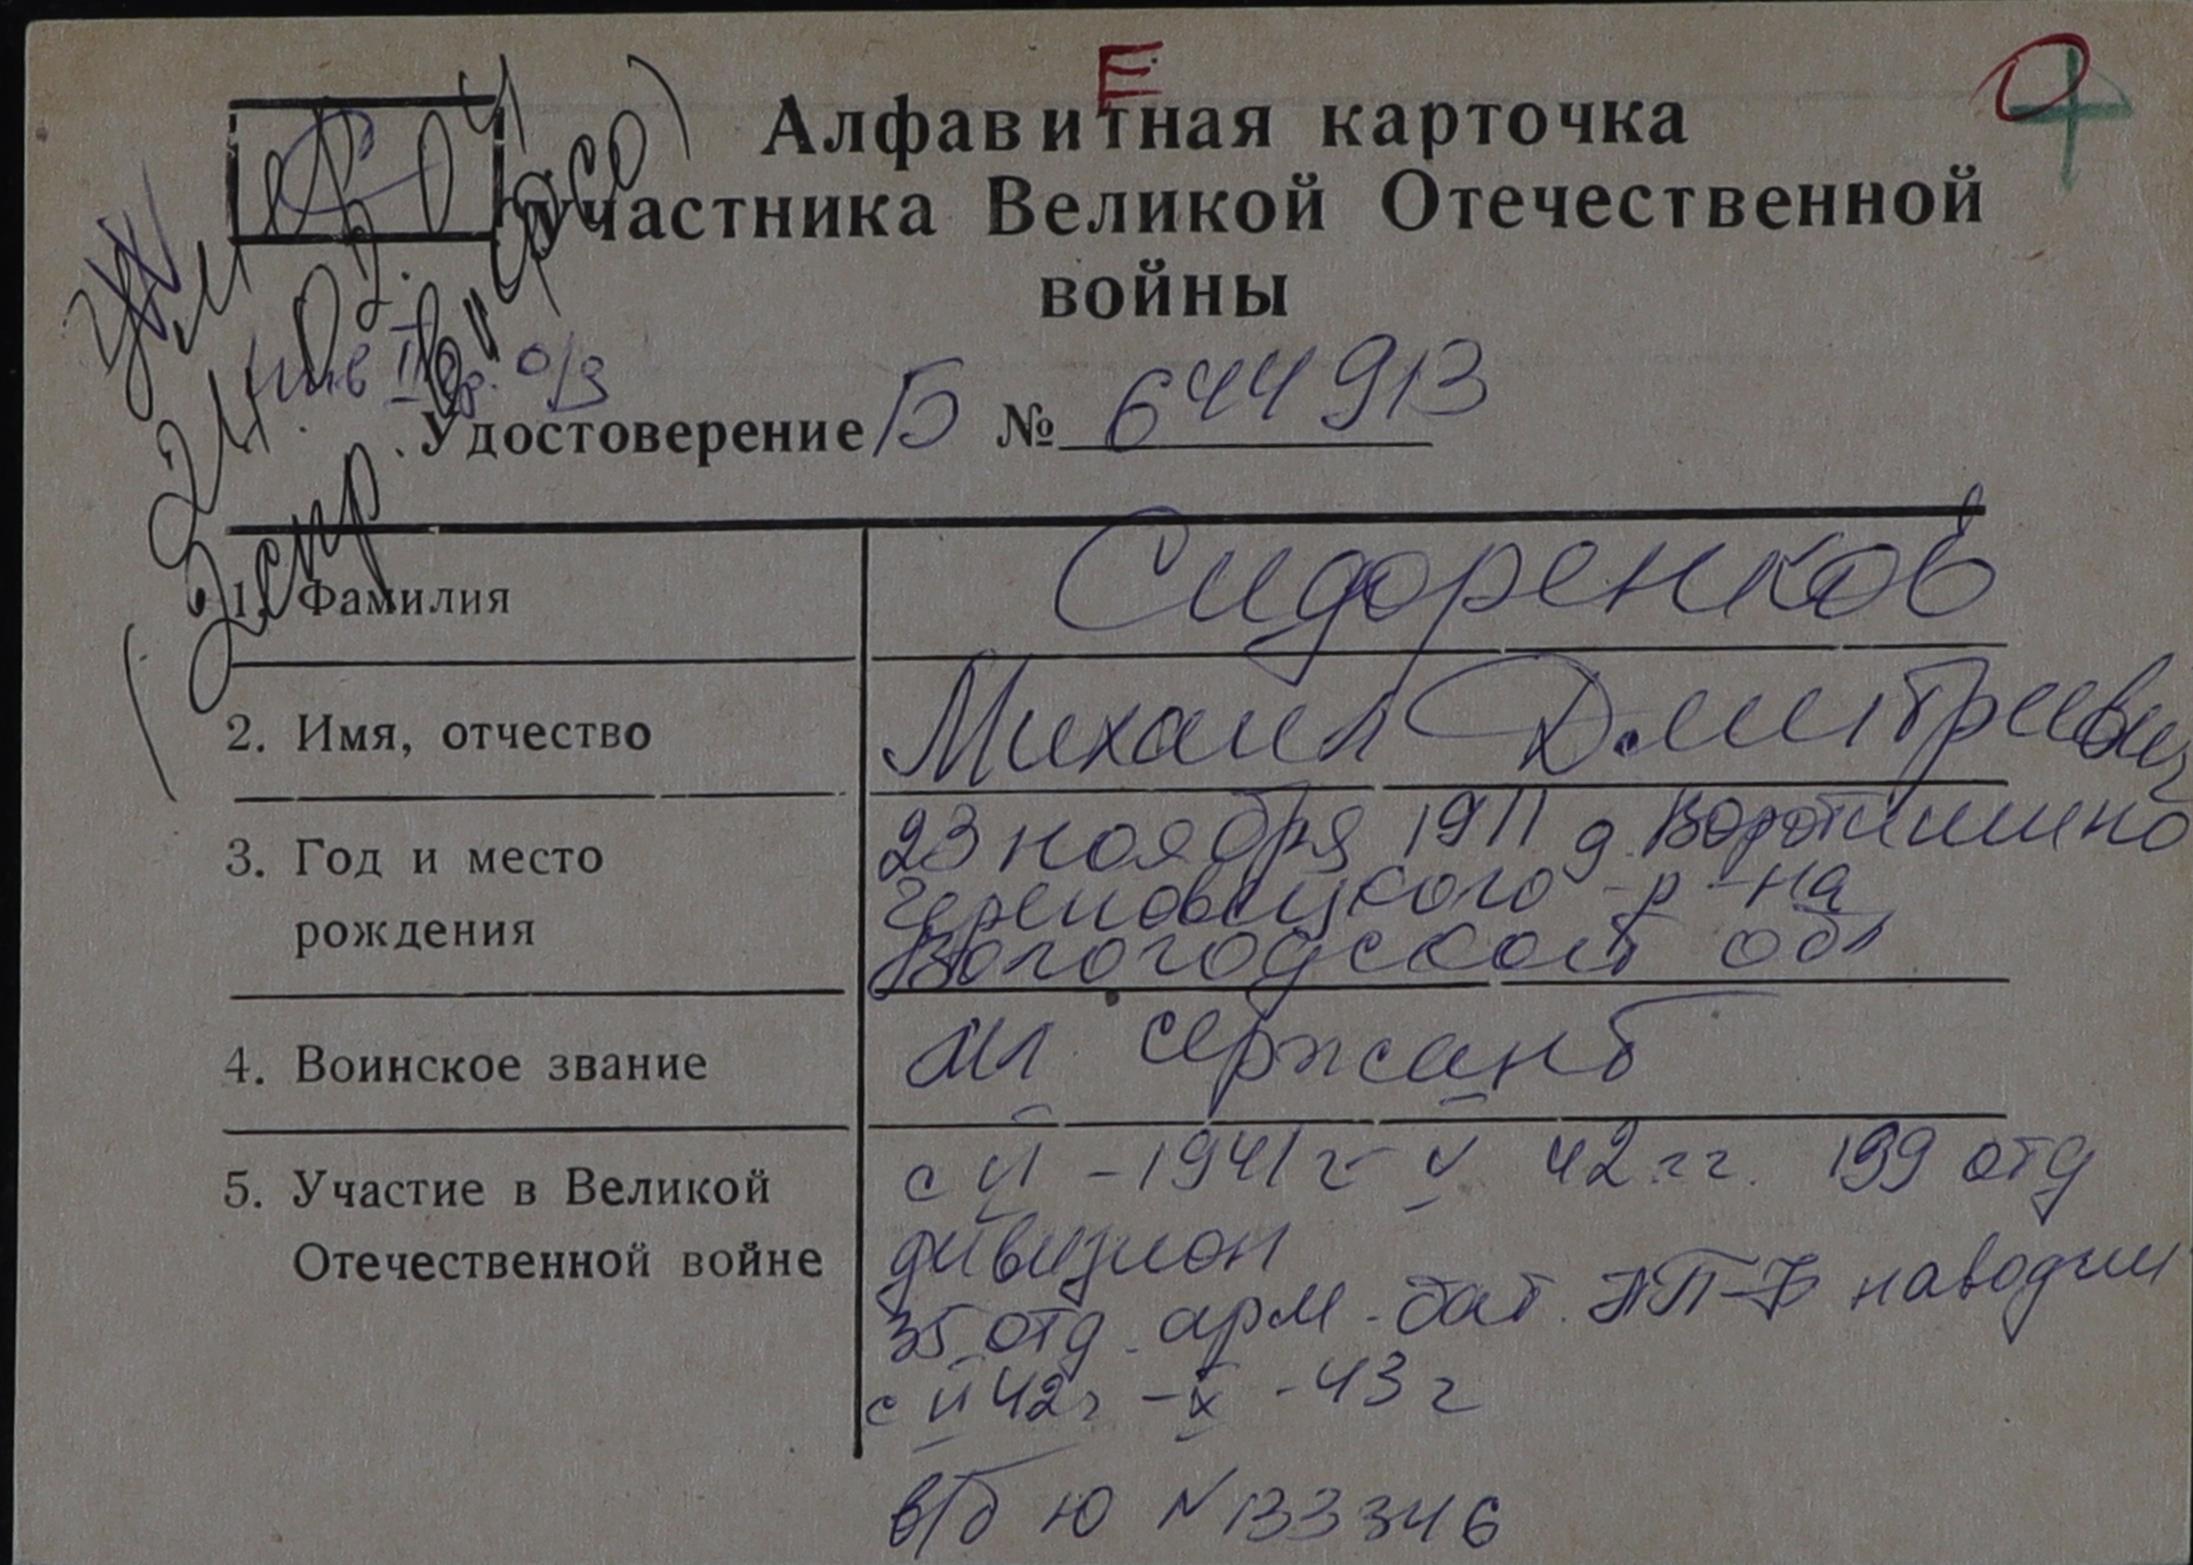 Е
Алфавитная карточка
участника Великой Отечественной
войны
умер
24.02.
Инв II гр. о/з
Удостоверение Б № 644913
1. Фамилия
Сидоренков
2. Имя, отчество
Михаил Дмитриевич
3. Год и место
рождения
23 ноября 1911 д. Воротишино
Череповецкого р-на
Вологодской обл
4. Воинское звание
мл сержант
5. Участие в Великой
Отечественной войне
- 1941 г V 42 гг. 199 отд
дивизион
35 отд. арм. бат. наводчи
42г - X - 43 г
в/б Ю № 133346